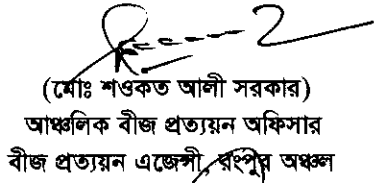 (মোঃ শওকত আলী সরকার)
আঞ্চলিক বীজ প্রত্যয়ন অফিসার
বীজ প্রত্যয়ন এজেন্সী, রংপুর অঞ্চল